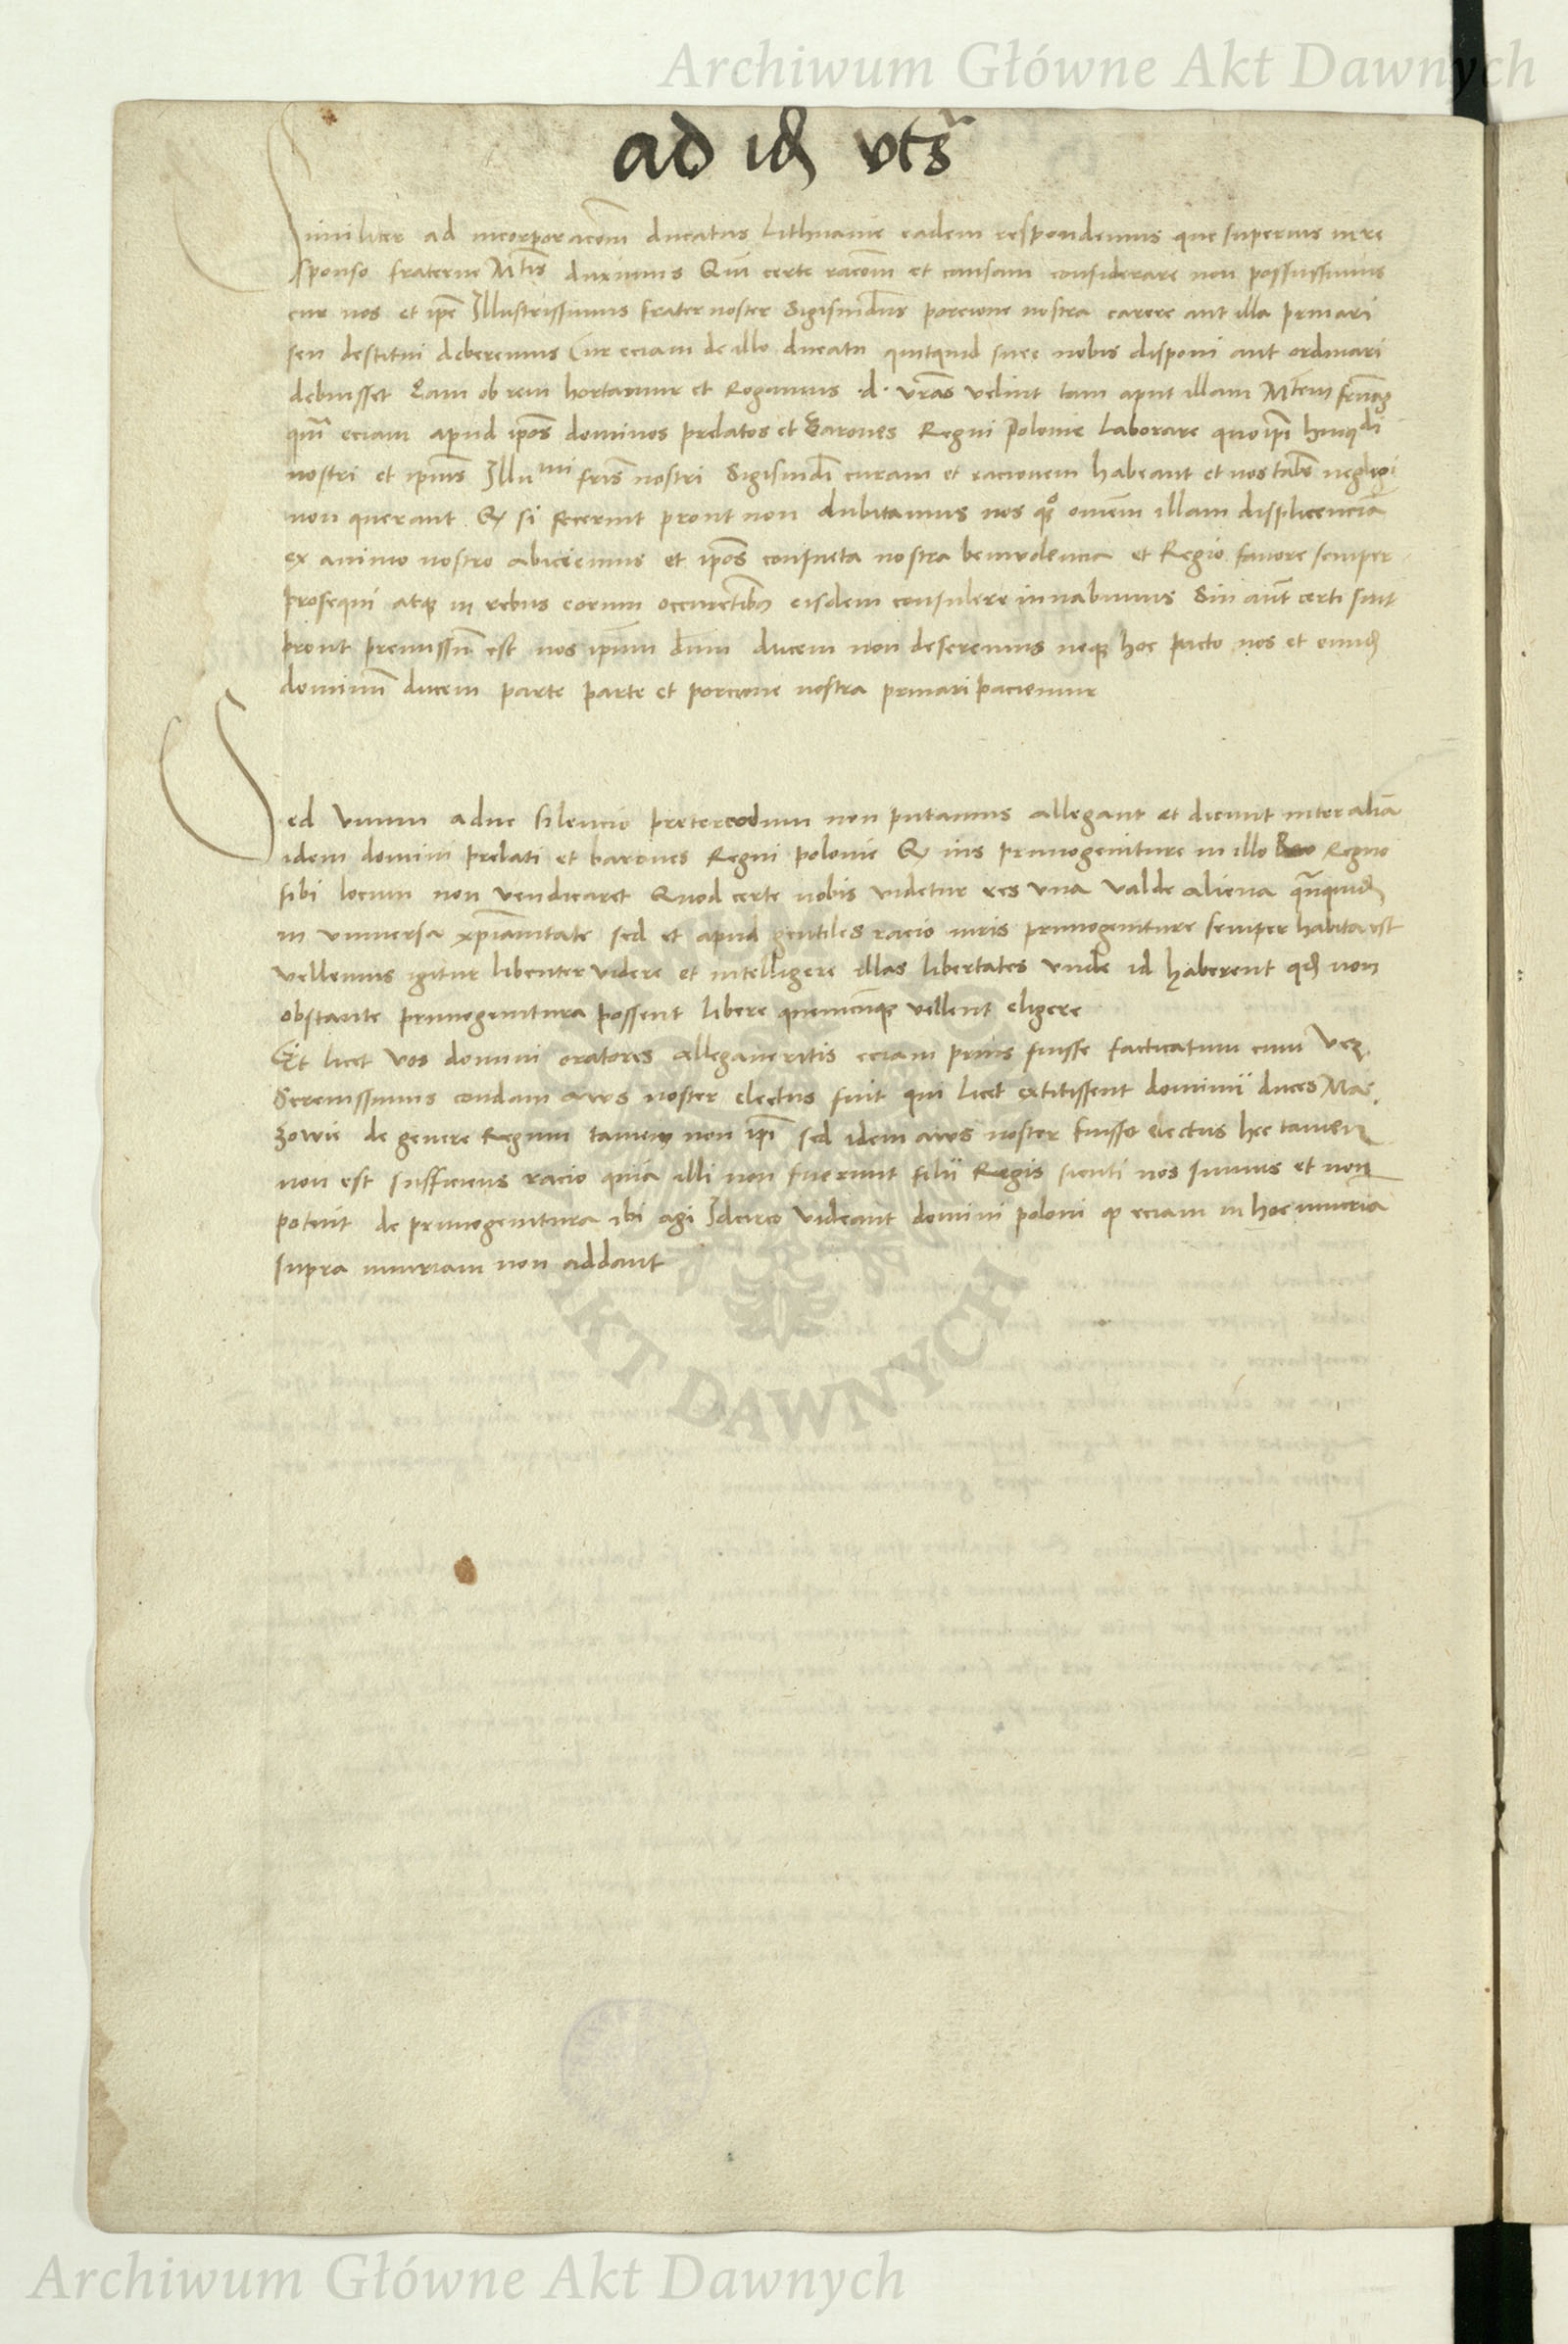 Archiwum Główne Akt Dawnych
ad id vts
Similiter ad incorporacõm ducatus Lithuanie eadem respondemus que superius in re
sponso fraterne Mtis diximus Qui certe racõm et causam considerare non possussimus
cur nos et ipẽ Illustrissimus frater noster Sigismũdus porcione nostra carere aut illa privari
seu destitui deberemus Cur eciam de illo ducatu quitquid sine nobis disponi aut ordinari
debuisset Qam ob rem hortamur et Rogamus .d. vrãs velint tam aput illam Mtem
eciam apud ipõs dominos prelatos et Barones Regni Polonie Laborare quo ipĩ
nostri et ipius Illumi fris nostri Sigismdi curam et racionem habeant et nos neglegi
non querant Q si fecerint prout non dubitamus nos omẽm illam displicenciã
ex animo nostro abiciemus et ipõs consueta nostra benivolencia et Regio favore semper
prosequi atq in rebus eorum occurẽtibs eisdem consulere iuvabimus Sin aũt certi sint
prout premissũ est nos ipsum dũm ducem non deseremus neq hoc pacto nos et eund
dominũ ducem parte parte et porcione nostra privari paciemur
Sed Unum aduc silencio pretereodum non putamus allegant et dicunt inter alia
idem domini prelati et barones Regni polonie Q ius primogeniture in illo Regno
sibi locum non vendicaret Quod certe nobis videtur res una valde aliena
in universa xpianitate sed et apud gentiles racio iuris primogeniture semper habita est
vellemus igitur libenter videre et intelligere illas libertates unde id haberent qd non
obstante primogenitura possent libere quemcũq vellent eligere
Et licet vos domini oratores allegaveritis eciam prius fuisse facticatum cum
Serenissimus condam avus noster electus fuit qui licet extitissent dominii duces Ma
zowie de genere Regum tamen non ipĩ sed idem avus noster fuisset electus hec tamen
non est sufficiens racio quia illi non fuerunt filii Regis sicuti nos sumus et non
potuit de primogenitura ibi agi Idcirco videant domini poloni q eciam in hoc iniuria
supra iniuriam non addant
AKT DAWNYCH
Archiwum Główne Akt Dawnych